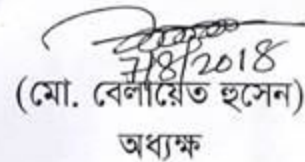 7/8/2018
(মো. বেলায়েত হুসেন)
অধ্যক্ষ